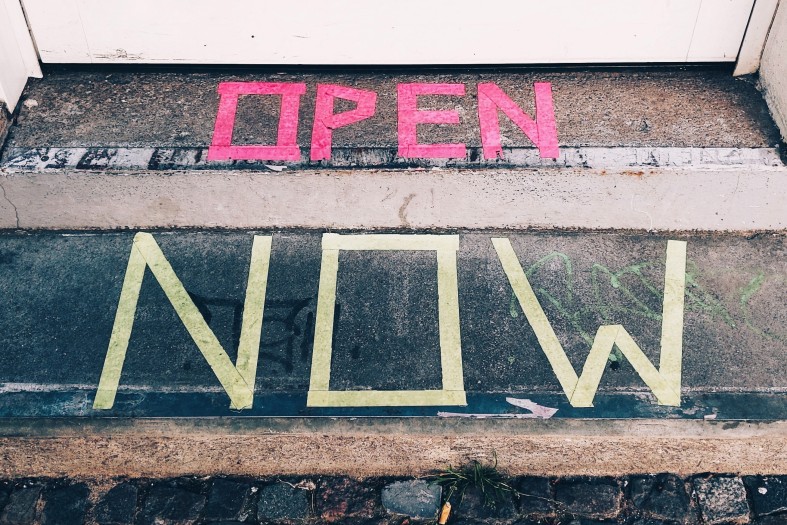 OPEN
NOW